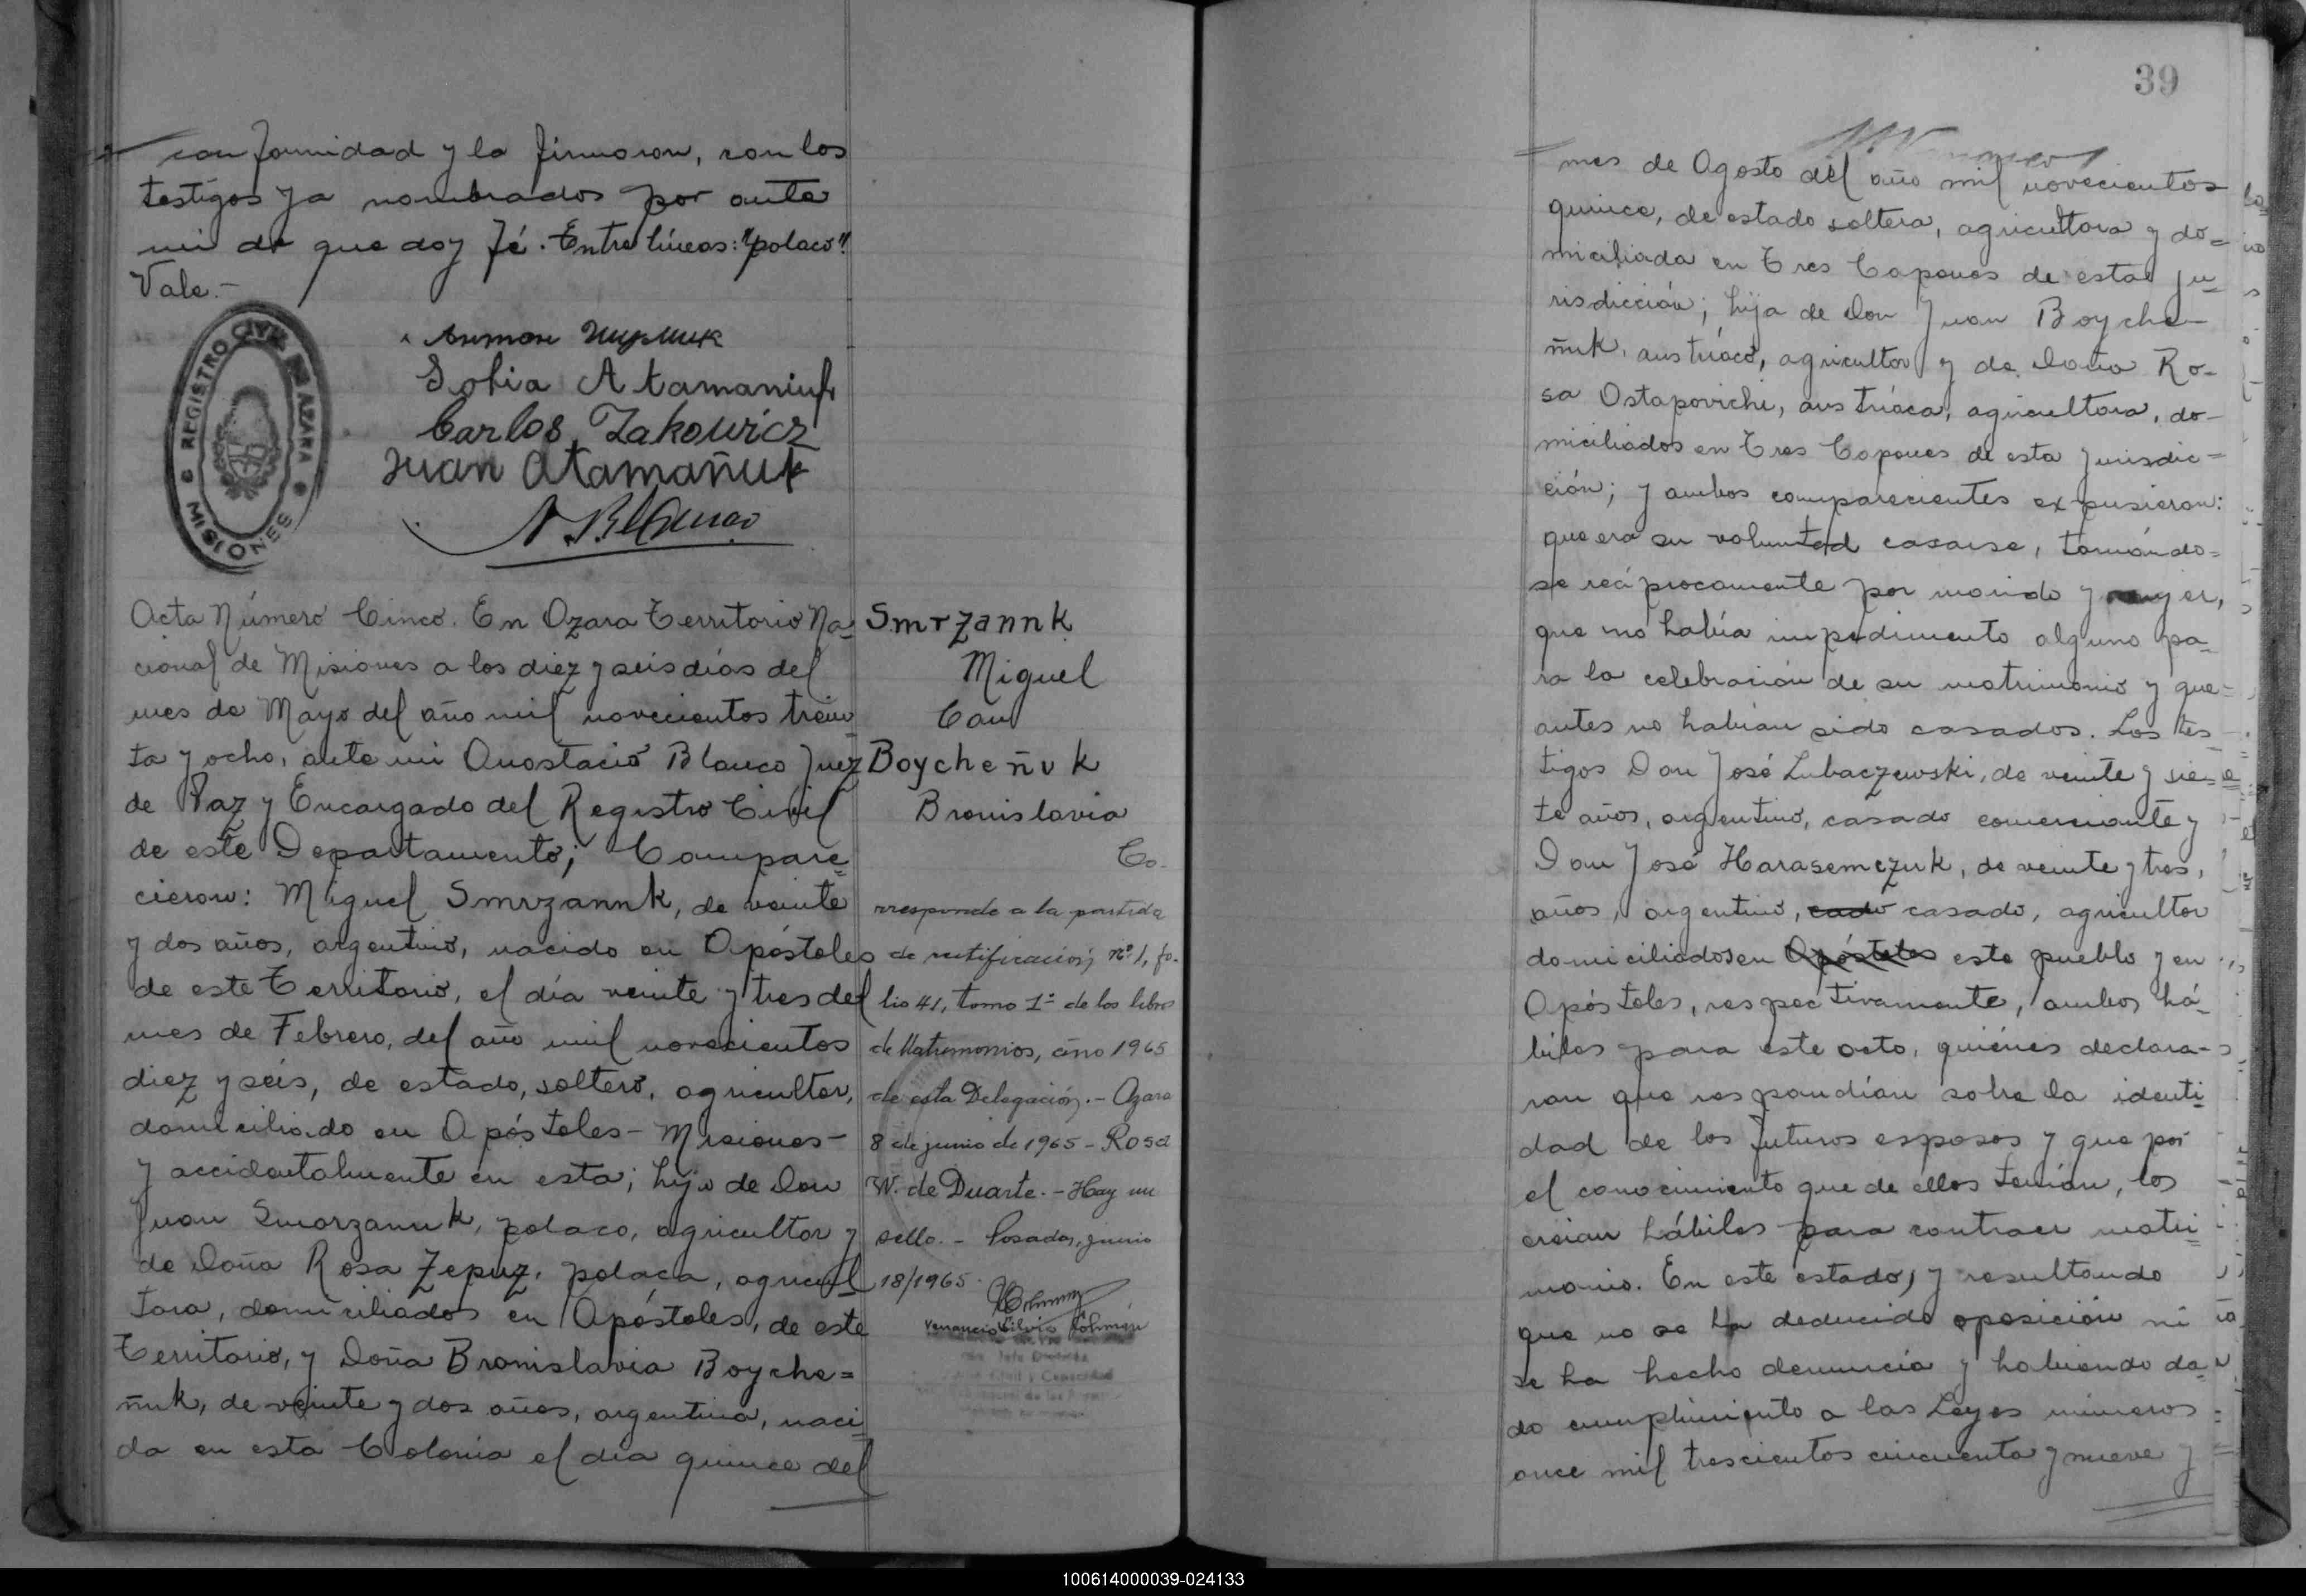 conformidad y la firmaron, con los
testigos ya nombrados por ante
mi de que doy fé. Entre líneas: "polaco".
Vale.-
REGISTRO CIVIL AZARA
MISIONES
Sofia Atamaniuk
Carlos Zakowicz
Juan Atamañuk
Acta Número Cinco. En Azara Territorio Na=
cional de Misiones a los diez y seis días del
mes de Mayo del año mil novecientos trein
ta y ocho, ante mi Anastacio Blanco Juez
de Paz y Encargado del Registro Civil
de este Departamento; Compare=
cieron: Miguel Smrzannk, de veinte
y dos años, argentino, nacido en Apóstoles
de este Territorio, el día veinte y tres del
mes de Febrero, del año mil novecientos
diez y seis, de estado, soltero, agricultor,
domiciliado en Apóstoles - Misiones -
y accidentalmente en esta; hijo de Don
Juan Smorzannk, polaco, agricultor y
de Doña Rosa Zepuz, polaca, agricul
tora, domiciliados en Apóstoles, de este
Territorio, y Doña Bronislavia Boyche=
ñuk, de veinte y dos años, argentina, naci
da en esta Colonia el día quince del
Smrzannk
Miguel
Con
Boycheñuk
Bronislavia
Co-
rresponde a la partida
de rectificación nº 1, fo-
lio 41, tomo 1º de los libros
de Matrimonios, año 1965
de esta Delegación.- Azara
8 de junio de 1965 - Rosa
W. de Duarte.- Hay un
sello.- Posadas, junio
18/1965
Venancio Silvio
39
mes de Agosto del año mil novecientos
quince, de estado soltera, agricultora y do=
miciliada en Tres Capones de esta ju=
risdicción; hija de Don Juan Boyche-
ñuk, austríaco, agricultor y de Doña Ro-
sa Ostapovichi, austríaca, agricultora, do-
miciliados en Tres Capones de esta jurisdic=
ción; y ambos comparecientes expusieron:
que era su voluntad casarse, tomándo=
se recíprocamente por marido y mujer,
que no había impedimento alguno pa=
ra la celebración de su matrimonio y que=
antes no habían sido casados. Los tes
tigos Don José Lubaczewski, de veinte y sie=
te años, argentino, casado comerciante y
Don José Harasemczuk, de veinte y tres,
años, argentino, cado casado, agricultor
domiciliados en Apóstoles este pueblo y en
Apóstoles, respectivamente, ambos há=
biles para este acto, quiénes declara-
ron que respondían sobre la identi=
dad de los futuros esposos y que por
el conocimiento que de ellos tenían, los
creían hábiles para contraer matri=
monio. En este estado, y resultando
que no se ha deducido oposición ni
se ha hecho denuncia y habiendo da=
do cumplimiento a las Leyes números
once mil trescientos cincuenta y nueve y
100614000039-024133